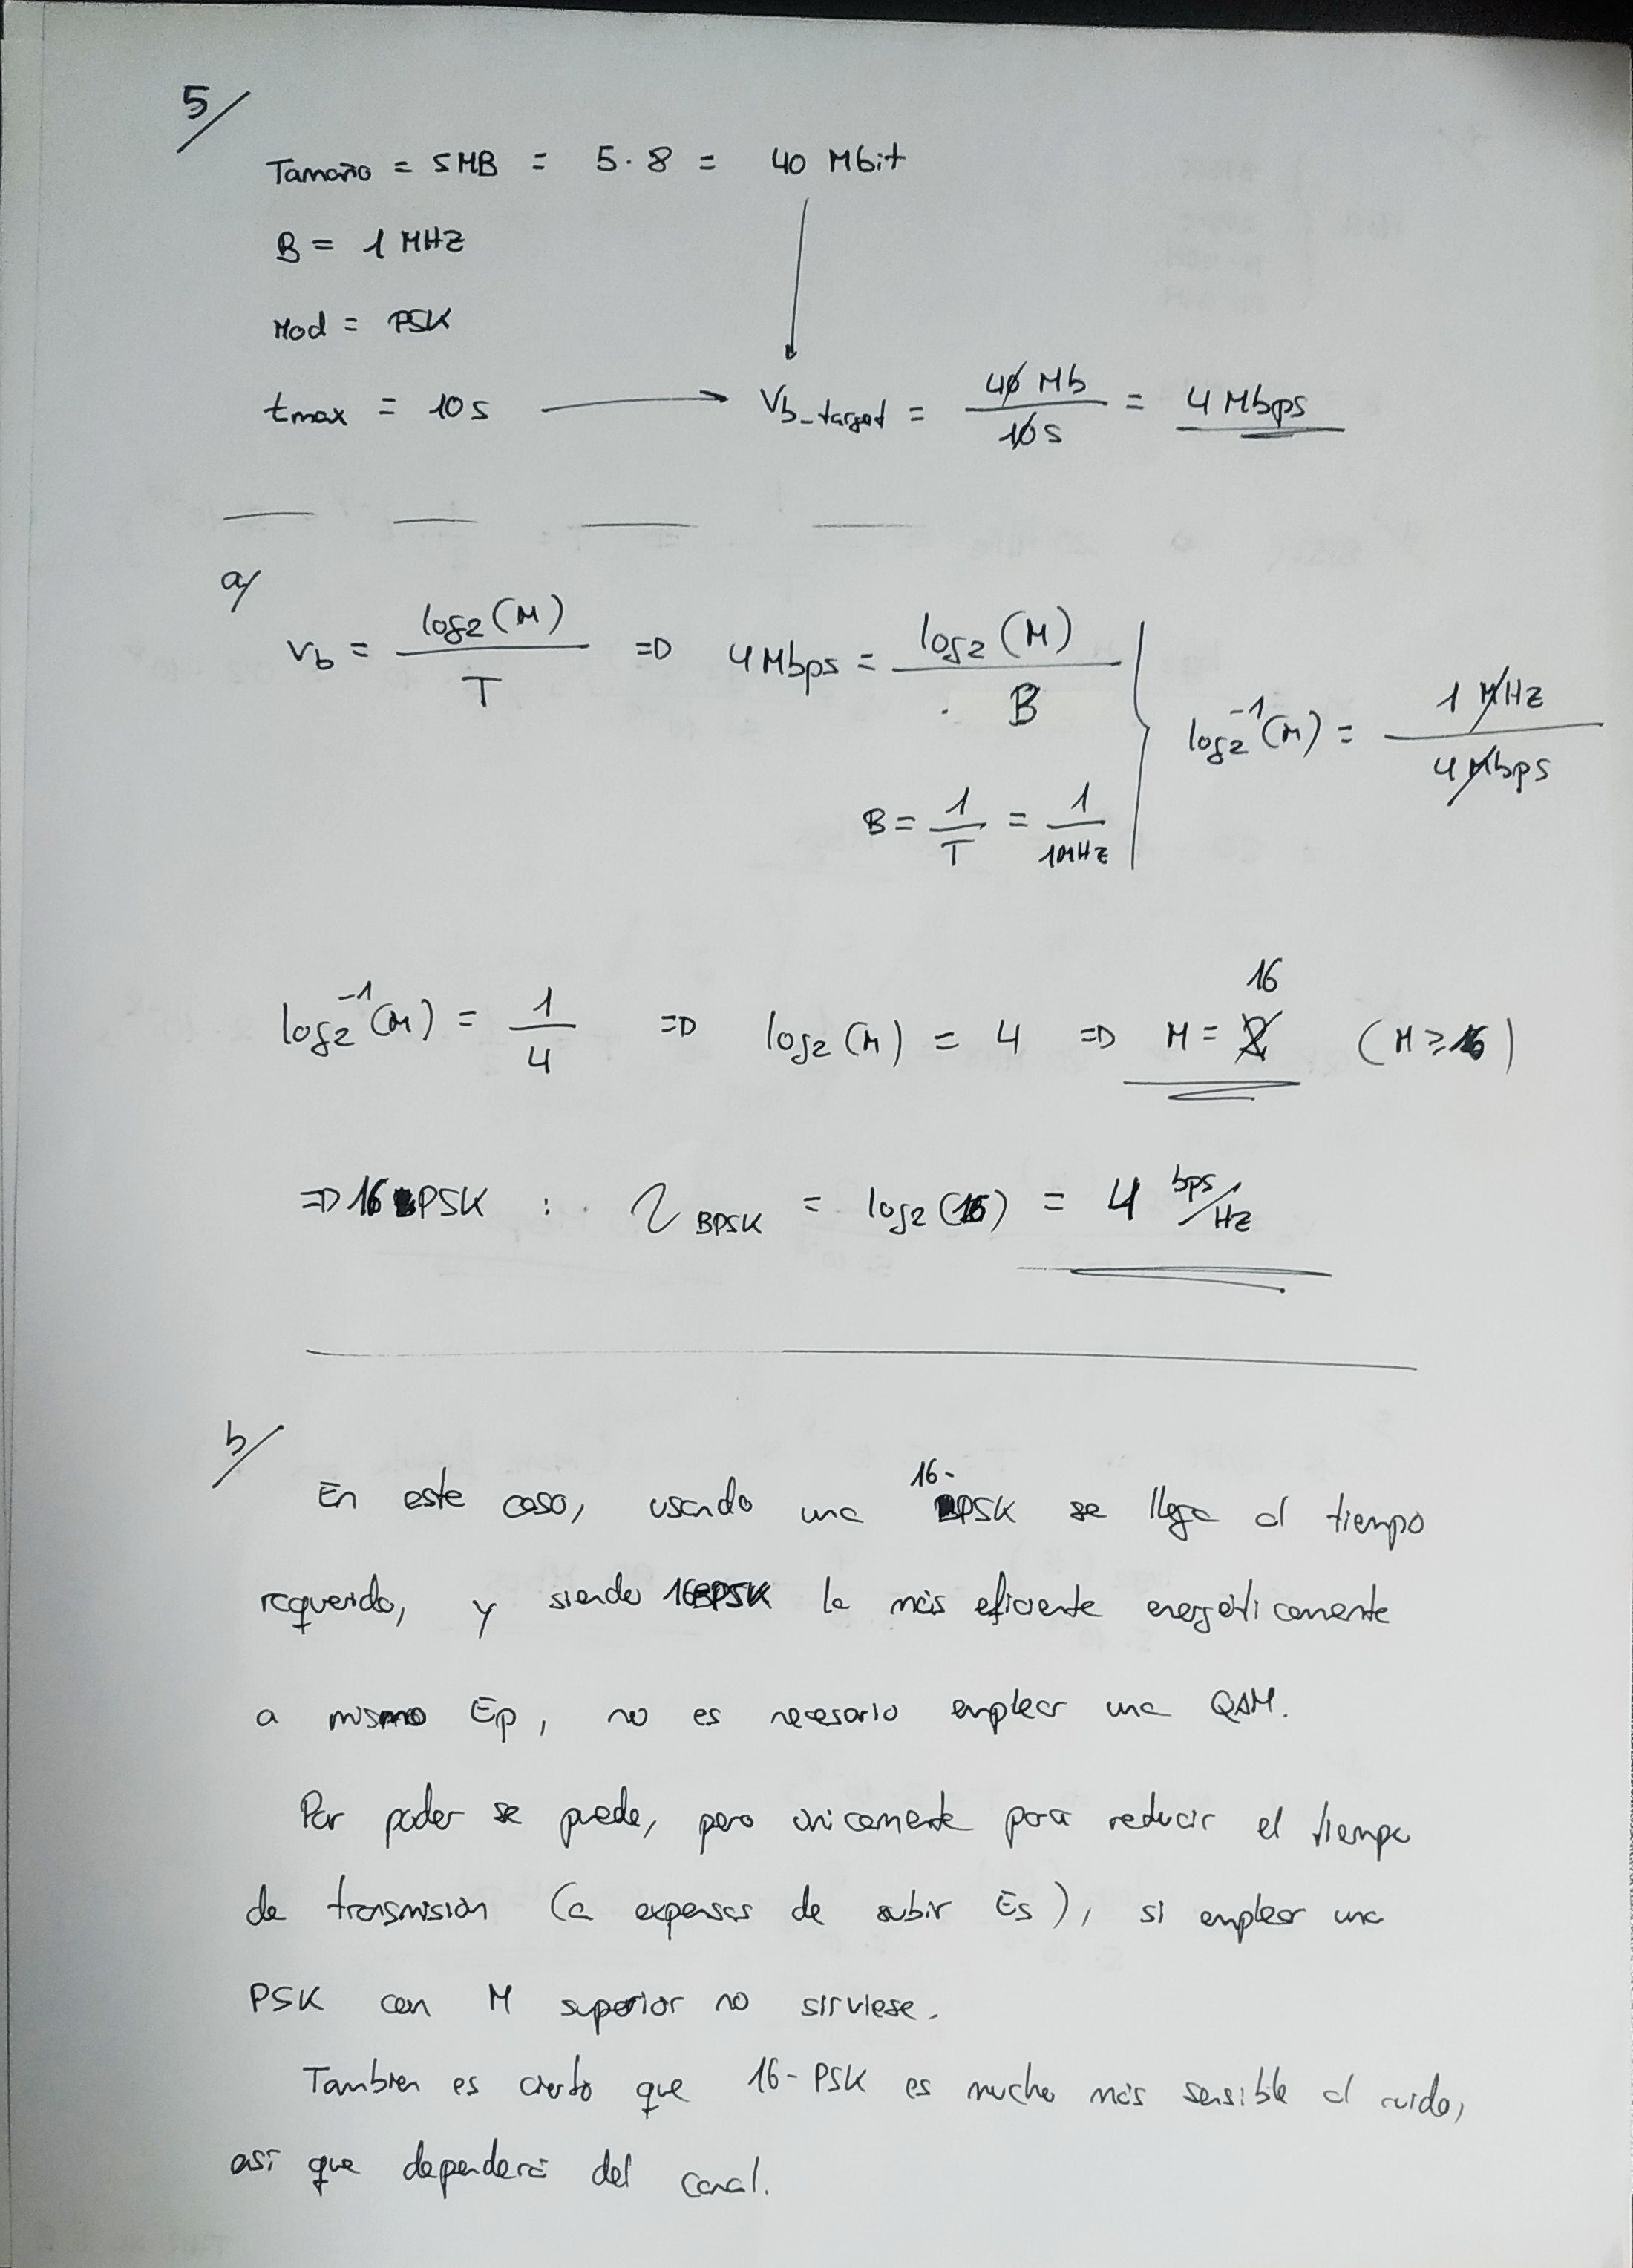 5/
Tamaño = 5MB = 5·8 = 40 Mbit
B = 1 MHz
Mod = PSK
tmax = 10s → Vb_target = 40 Mb / 10s = 4 Mbps
a/
Vb = log2(M) / T => 4 Mbps = log2(M) / B
B = 1/T = 1/1MHz
log2^-1(M) = 1 MHz / 4 Mbps
log2^-1(M) = 1/4 => log2(M) = 4 => M = 16 (M ≥ 16)
=> 16 PSK : η BPSK = log2(16) = 4 bps/Hz
b/
En este caso, usando una 16-PSK se llega al tiempo
requerido, y siendo 16PSK la más eficiente energéticamente
a mismo Ep, no es necesario emplear una QAM.
Por poder se puede, pero únicamente para reducir el tiempo
de transmisión (a expensas de subir Es), si emplear una
PSK con M superior no sirviese.
Tambien es cierto que 16-PSK es mucho más sensible al ruido,
así que dependerá del canal.